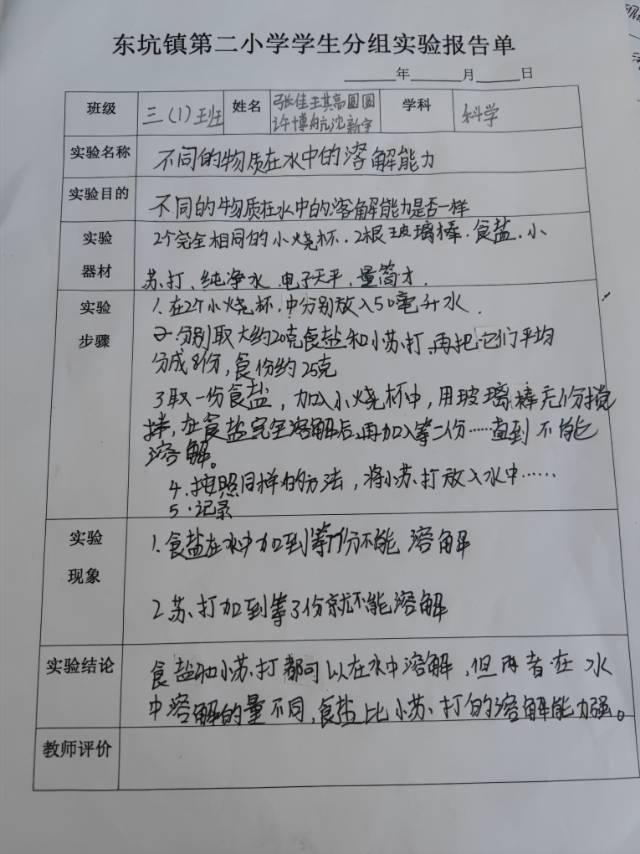 东坑镇第二小学学生分组实验报告单
年 月 日
班级 三(1)班 姓名 张佳琪高圆圆 学科 科学
许博航沈新宇
实验名称 不同的物质在水中的溶解能力
实验目的 不同的物质在水中的溶解能力是否一样
实验 2个完全相同的小烧杯.2根玻璃棒.食盐.小
器材 苏打、纯净水.电子天平,量筒才.
实验 1.在2个小烧杯.中分别放入50毫升水.
步骤 2.分别取大约20克食盐和小苏打,再把它们平均
分成8份,食份约25克
3取一份食盐,加入小烧杯中,用玻璃棒充份搅
拌,在食盐完全溶解后,再加入等二份……直到不能
溶解。
4.按照同样的方法,将小苏打放入水中……
5.记录
实验 1.食盐在水中加到等7份不能溶解
现象
2苏打加到等3份就不能溶解
实验结论 食盐和小苏打都可以在水中溶解,但两者在水
中溶解的量不同,食盐比小苏打的溶解能力强。
教师评价